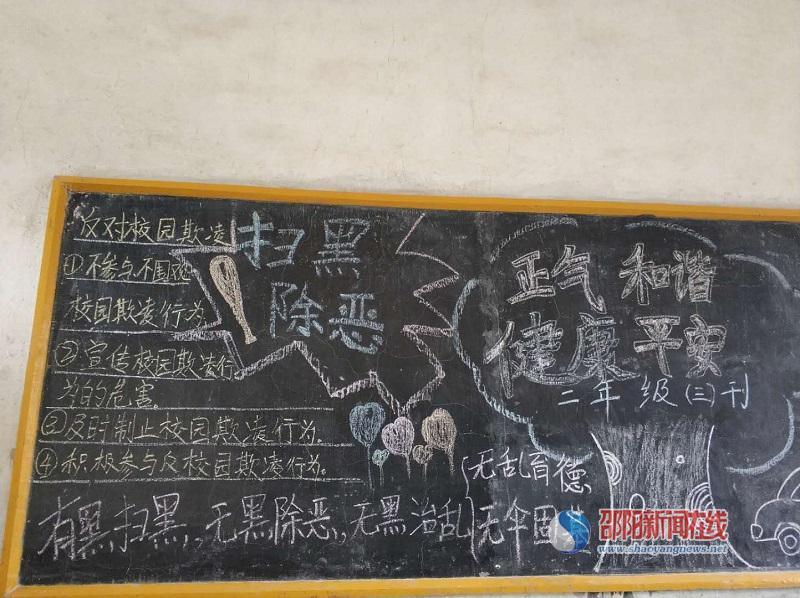 反对校园欺凌
①不参与不围观
校园欺凌行为
②宣传校园欺凌行
为的危害。
③及时制止校园欺凌行为.
④积极参与反校园欺凌行为。
扫黑
除恶
正气 和谐
健康 平安
二年级(三)刊
有黑扫黑,无黑除恶,无黑治乱
无乱育德
无伞固
邵阳新闻在线
www.shaoyangnews.net